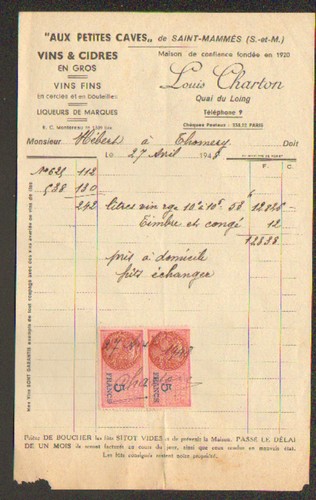 "AUX PETITES CAVES„ de SAINT-MAMMÈS (S.-et-M.)
VINS & CIDRES
EN GROS
VINS FINS
En cercles et en bouteilles
LIQUEURS DE MARQUES
Maison de confiance fondée en 1920
Louis Charton
Quai du Loing
Téléphone 9
Chèques Postaux : PARIS
R. C. Montereau
Monsieur Hébert à Thomery Doit
le 27 Avril 1948
F. C.
No 625 112
538 130
242 litres vin rge 10° à 10°5 53 12826
Timbre et congé 12
12838
pris à domicile
fûts échanger
27 Avril 1948
5 FRANCS
5 FRANCS
Nos Vins SONT GARANTIS
Prière de BOUCHER les fûts SITOT VIDES et de prévenir la Maison. PASSÉ LE DÉLAI
DE UN MOIS ils seront facturés au cours du jour, ainsi que ceux rendus en mauvais état.
Les fûts consignés restent notre propriété.